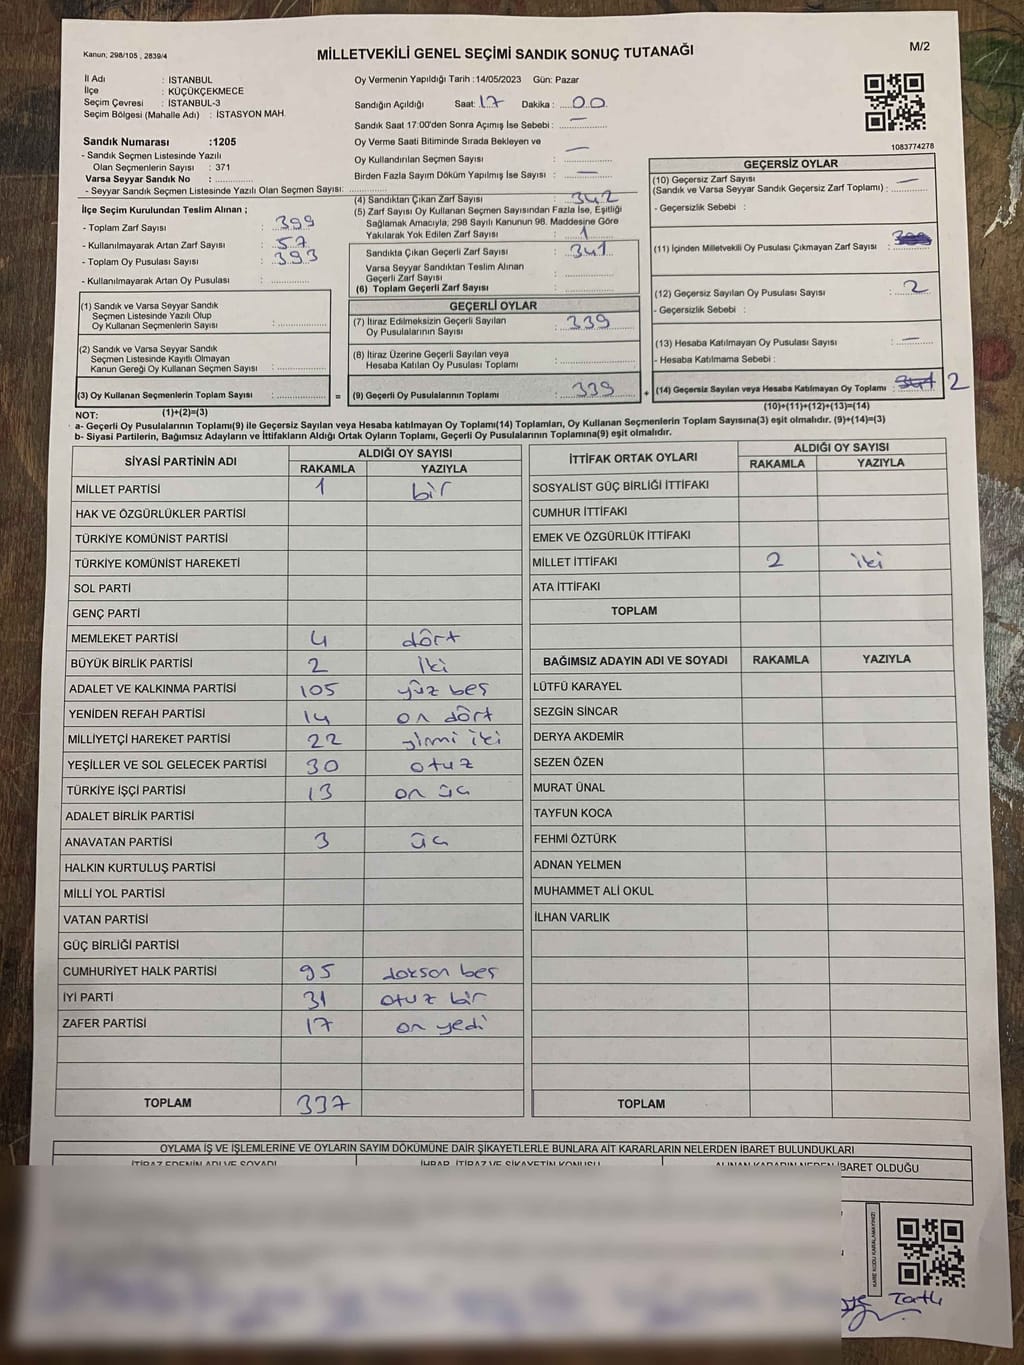 Kanun; 298/105 , 2839/4
MİLLETVEKİLİ GENEL SEÇİMİ SANDIK SONUÇ TUTANAĞI
M/2
İl Adı : İSTANBUL
İlçe : KÜÇÜKÇEKMECE
Seçim Çevresi : İSTANBUL-3
Seçim Bölgesi (Mahalle Adı) : İSTASYON MAH.
Sandık Numarası :1205
- Sandık Seçmen Listesinde Yazılı
Olan Seçmenlerin Sayısı : 371
Varsa Seyyar Sandık No : ..............
- Seyyar Sandık Seçmen Listesinde Yazılı Olan Seçmen Sayısı: ..............
Oy Vermenin Yapıldığı Tarih : 14/05/2023 Gün: Pazar
Sandığın Açıldığı Saat: 17 Dakika : 00
Sandık Saat 17:00'den Sonra Açımış İse Sebebi : —
Oy Verme Saati Bitiminde Sırada Bekleyen ve
Oy Kullandırılan Seçmen Sayısı : —
Birden Fazla Sayım Döküm Yapılmış İse Sayısı : —
1083774278
İlçe Seçim Kurulundan Teslim Alınan ;
- Toplam Zarf Sayısı : 399
- Kullanılmayarak Artan Zarf Sayısı : 57
- Toplam Oy Pusulası Sayısı : 393
- Kullanılmayarak Artan Oy Pusulası : ..............
(1) Sandık ve Varsa Seyyar Sandık
Seçmen Listesinde Yazılı Olup
Oy Kullanan Seçmenlerin Sayısı : ..............
(2) Sandık ve Varsa Seyyar Sandık
Seçmen Listesinde Kayıtlı Olmayan
Kanun Gereği Oy Kullanan Seçmen Sayısı : ..............
(3) Oy Kullanan Seçmenlerin Toplam Sayısı : .............. =
(4) Sandıktan Çıkan Zarf Sayısı : 342
(5) Zarf Sayısı Oy Kullanan Seçmen Sayısından Fazla İse, Eşitliği
Sağlamak Amacıyla, 298 Sayılı Kanunun 98. Maddesine Göre
Yakılarak Yok Edilen Zarf Sayısı : 1
Sandıkta Çıkan Geçerli Zarf Sayısı : 341
Varsa Seyyar Sandıktan Teslim Alınan
Geçerli Zarf Sayısı : ..............
(6) Toplam Geçerli Zarf Sayısı : ..............
GEÇERLİ OYLAR
(7) İtiraz Edilmeksizin Geçerli Sayılan
Oy Pusulalarının Sayısı : 339
(8) İtiraz Üzerine Geçerli Sayılan veya
Hesaba Katılan Oy Pusulası Toplamı : ..............
(9) Geçerli Oy Pusulalarının Toplamı : 339 +
GEÇERSİZ OYLAR
(10) Geçersiz Zarf Sayısı
(Sandık ve Varsa Seyyar Sandık Geçersiz Zarf Toplamı) : —
- Geçersizlik Sebebi :
(11) İçinden Milletvekili Oy Pusulası Çıkmayan Zarf Sayısı :
(12) Geçersiz Sayılan Oy Pusulası Sayısı : 2
- Geçersizlik Sebebi :
(13) Hesaba Katılmayan Oy Pusulası Sayısı : —
- Hesaba Katılmama Sebebi :
(14) Geçersiz Sayılan veya Hesaba Katılmayan Oy Toplamı : 2
(10)+(11)+(12)+(13)=(14)
NOT: (1)+(2)=(3)
a- Geçerli Oy Pusulalarının Toplamı(9) ile Geçersiz Sayılan veya Hesaba katılmayan Oy Toplamı(14) Toplamları, Oy Kullanan Seçmenlerin Toplam Sayısına(3) eşit olmalıdır. (9)+(14)=(3)
b- Siyasi Partilerin, Bağımsız Adayların ve İttifakların Aldığı Ortak Oyların Toplamı, Geçerli Oy Pusulalarının Toplamına(9) eşit olmalıdır.
SİYASİ PARTİNİN ADI ALDIĞI OY SAYISI
RAKAMLA YAZIYLA
MİLLET PARTİSİ 1 bir
HAK VE ÖZGÜRLÜKLER PARTİSİ
TÜRKİYE KOMÜNİST PARTİSİ
TÜRKİYE KOMÜNİST HAREKETİ
SOL PARTİ
GENÇ PARTİ
MEMLEKET PARTİSİ 4 dört
BÜYÜK BİRLİK PARTİSİ 2 iki
ADALET VE KALKINMA PARTİSİ 105 yüz beş
YENİDEN REFAH PARTİSİ 14 on dört
MİLLİYETÇİ HAREKET PARTİSİ 22 yirmi iki
YEŞİLLER VE SOL GELECEK PARTİSİ 30 otuz
TÜRKİYE İŞÇİ PARTİSİ 13 on üç
ADALET BİRLİK PARTİSİ
ANAVATAN PARTİSİ 3 üç
HALKIN KURTULUŞ PARTİSİ
MİLLİ YOL PARTİSİ
VATAN PARTİSİ
GÜÇ BİRLİĞİ PARTİSİ
CUMHURİYET HALK PARTİSİ 95 doksan beş
İYİ PARTİ 31 otuz bir
ZAFER PARTİSİ 17 on yedi
TOPLAM 337
İTTİFAK ORTAK OYLARI ALDIĞI OY SAYISI
RAKAMLA YAZIYLA
SOSYALİST GÜÇ BİRLİĞİ İTTİFAKI
CUMHUR İTTİFAKI
EMEK VE ÖZGÜRLÜK İTTİFAKI
MİLLET İTTİFAKI 2 iki
ATA İTTİFAKI
TOPLAM
BAĞIMSIZ ADAYIN ADI VE SOYADI RAKAMLA YAZIYLA
LÜTFÜ KARAYEL
SEZGİN SİNCAR
DERYA AKDEMİR
SEZEN ÖZEN
MURAT ÜNAL
TAYFUN KOCA
FEHMİ ÖZTÜRK
ADNAN YELMEN
MUHAMMET ALİ OKUL
İLHAN VARLIK
TOPLAM
OYLAMA İŞ VE İŞLEMLERİNE VE OYLARIN SAYIM DÖKÜMÜNE DAİR ŞİKAYETLERLE BUNLARA AİT KARARLARIN NELERDEN İBARET BULUNDUKLARI
İTİRAZ EDENİN ADI VE SOYADI İHBAR, İTİRAZ VE ŞİKAYETİN KONUSU ALINAN KARARIN NEDEN İBARET OLDUĞU
KARE KODU KARALAMAYINIZ!
Tatlı